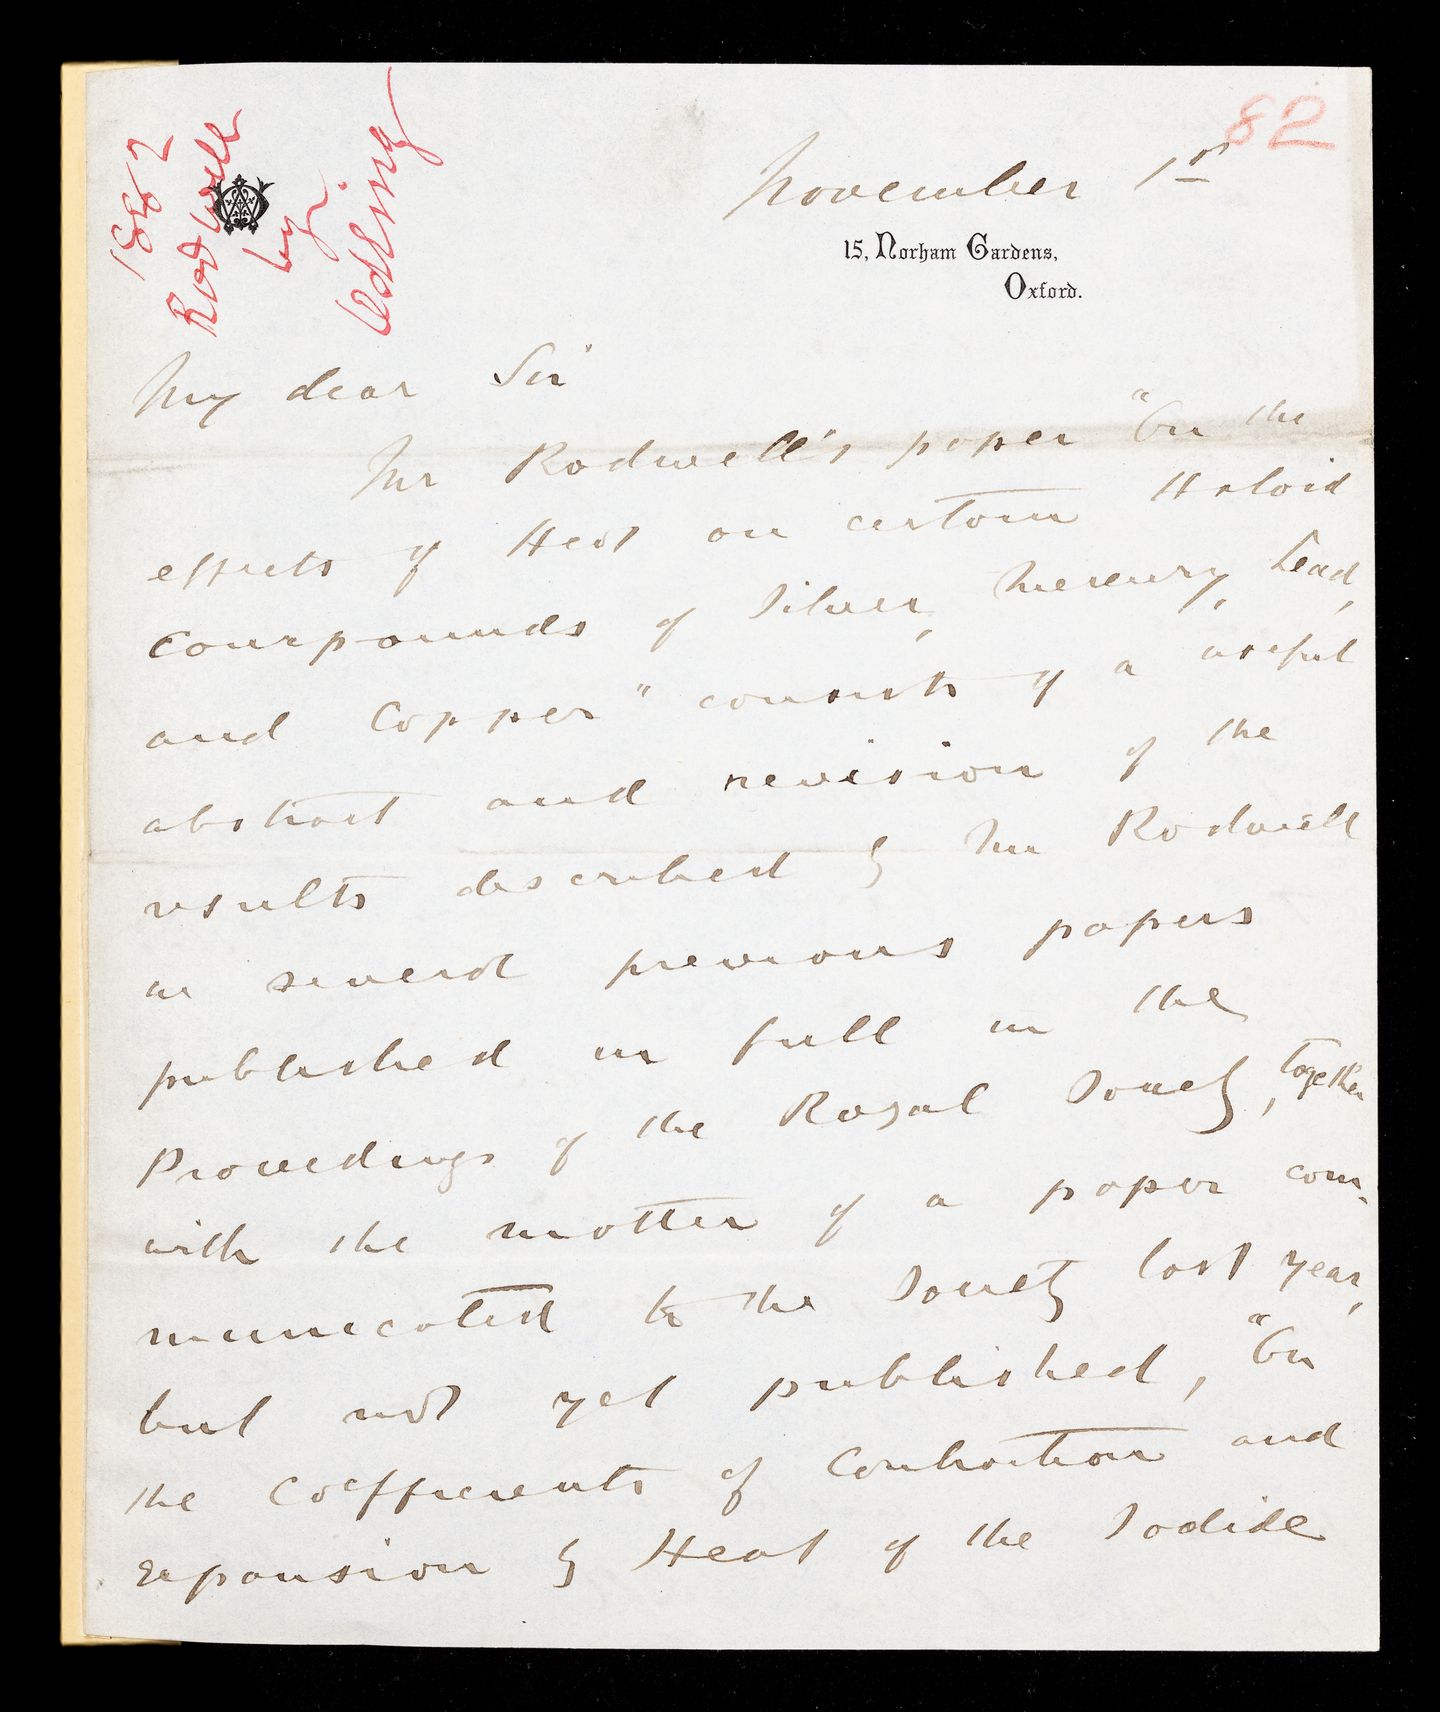 1882
Rodwell
by
Odling
82
November 1st
15, Norham Gardens,
Oxford.
My dear Sir
Mr Rodwell's paper "On the
effects of Heat on certain Haloid
Compounds of Silver, Mercury, Lead,
and Copper" consists of a useful
abstract and revision of the
results described by Mr Rodwell
in several previous papers
published in full in the
Proceedings of the Royal Society, together
with the matter of a paper com-
municated to the Society last year,
but not yet published, "On
the Coefficients of Contraction and
Expansion by Heat of the Iodide